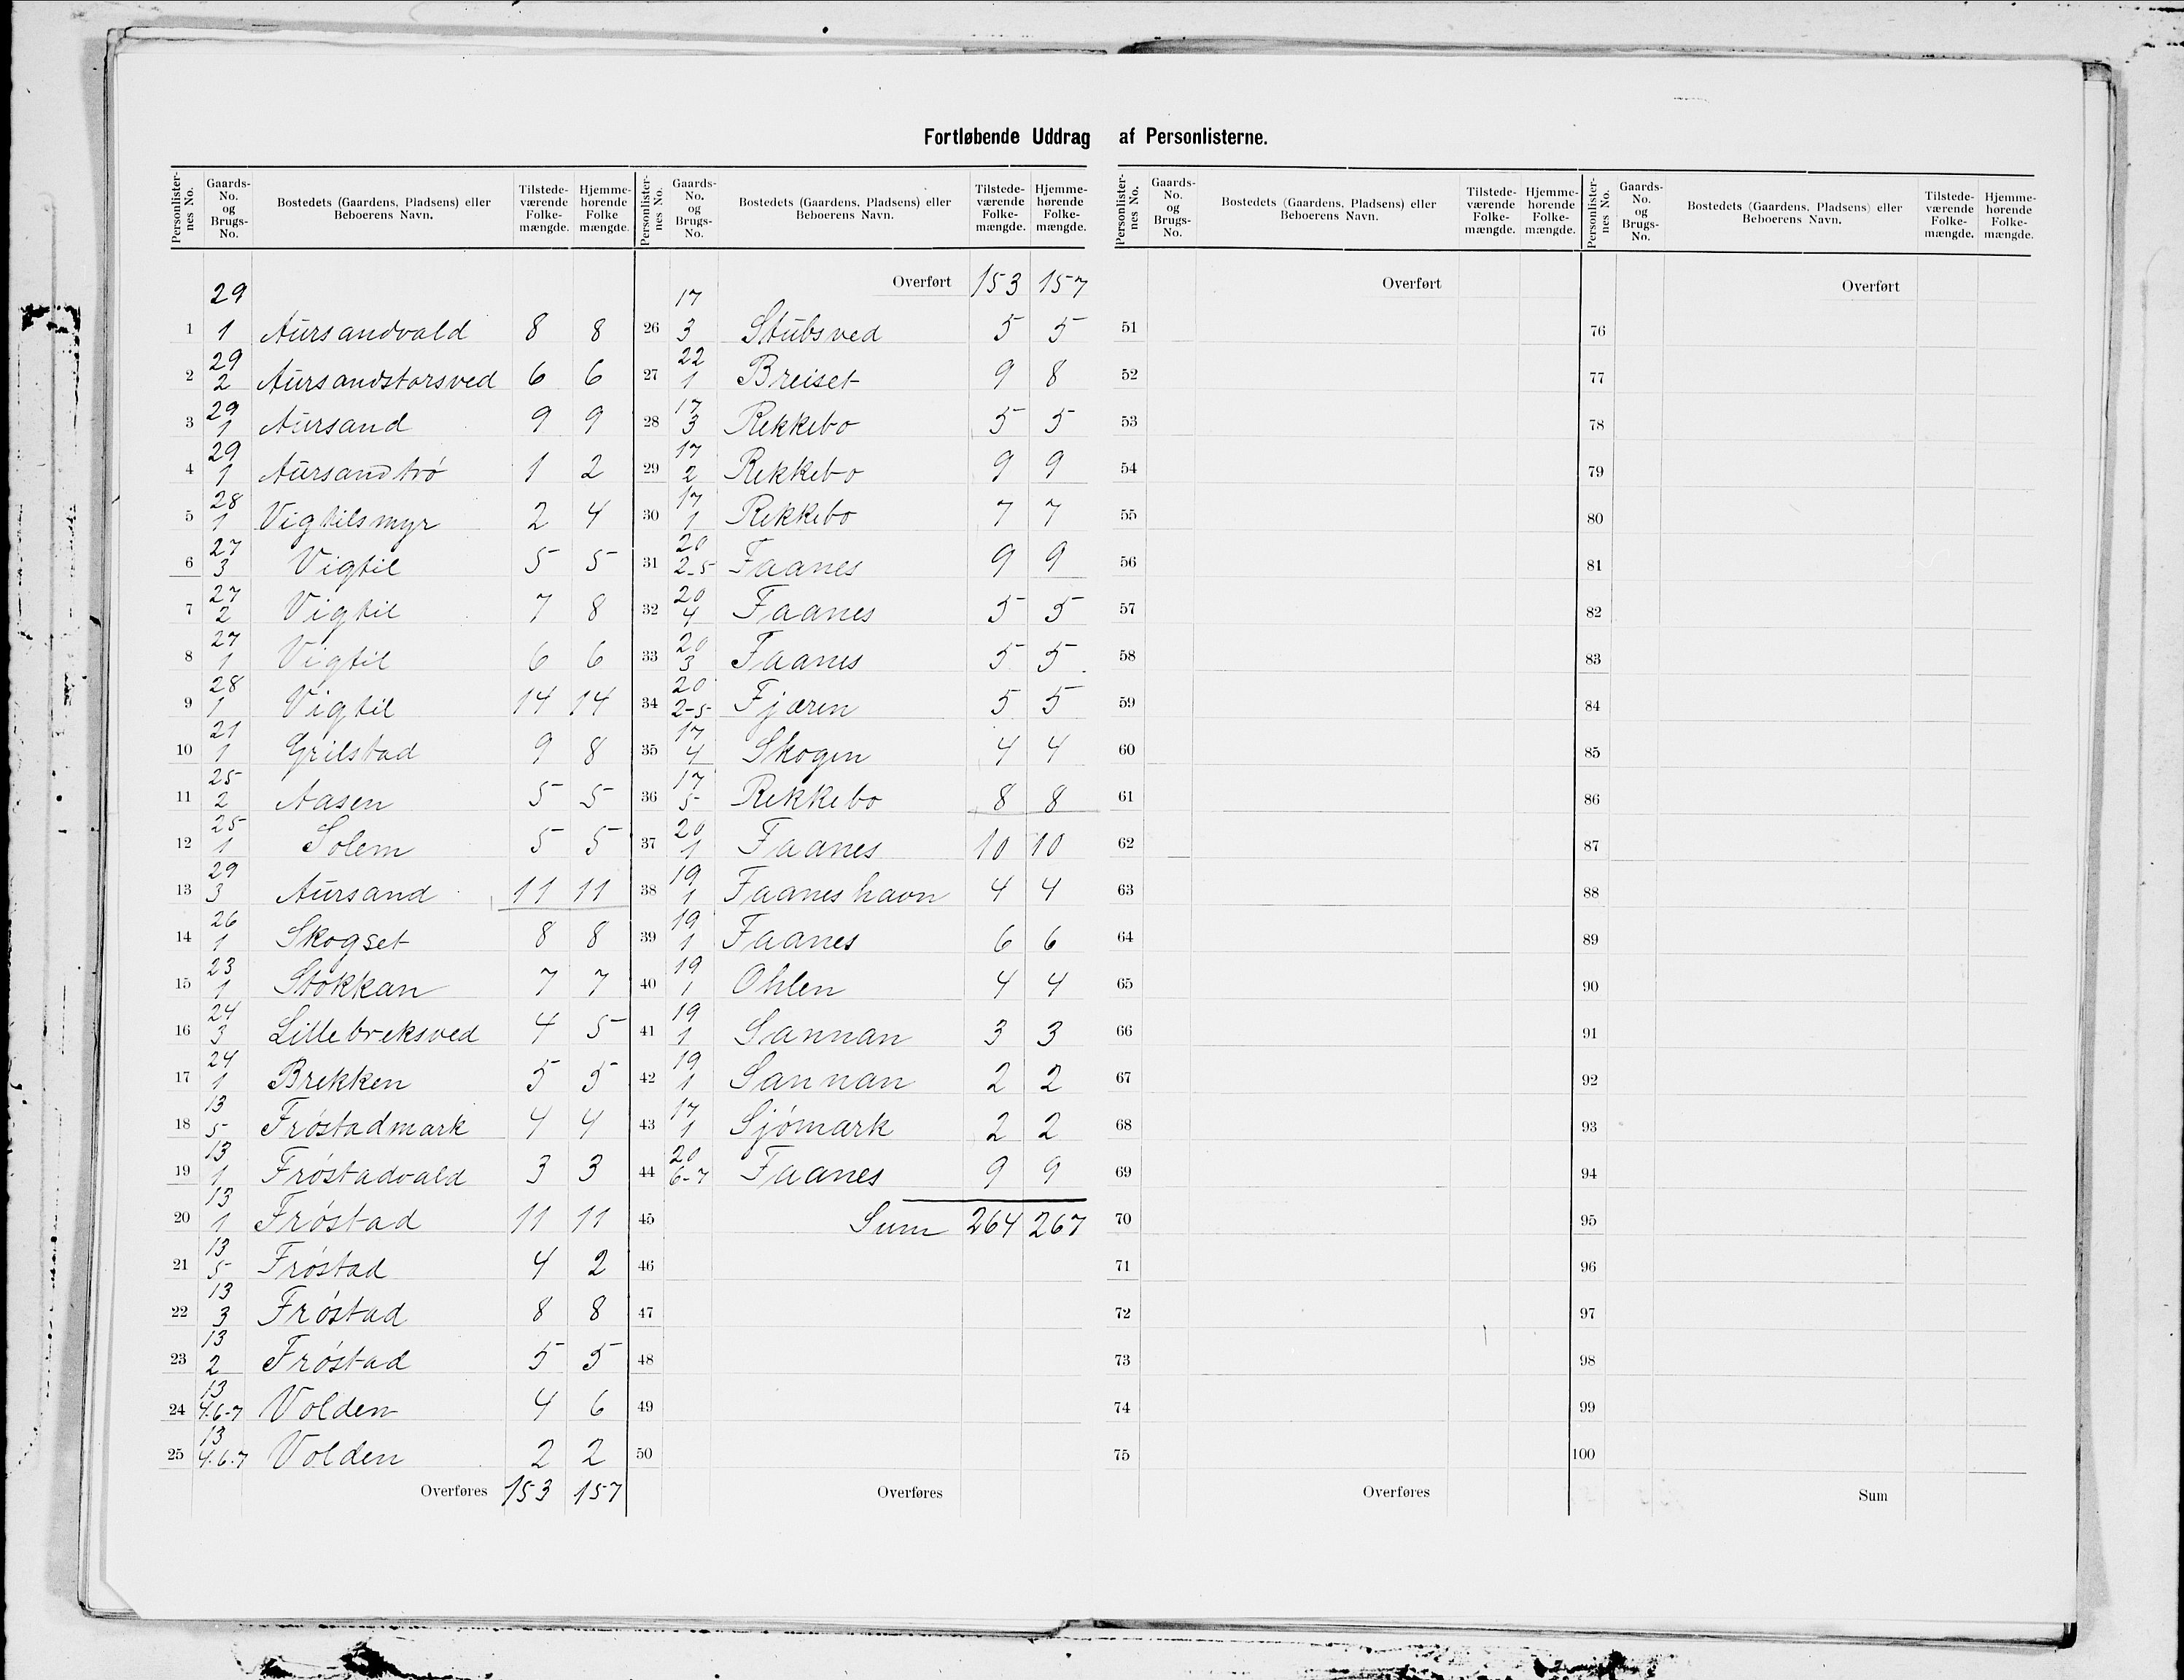 Fortløbende Uddrag af Personlisterne.
Personlisternes No. | Gaards-No. og Brugs-No. | Bostedets (Gaardens, Pladsens) eller Beboerens Navn. | Tilstedeværende Folkemængde. | Hjemmehørende Folkemængde.
1 | 29 1 | Aursandvald | 8 | 8
2 | 29 2 | Aursandstorsved | 6 | 6
3 | 29 1 | Aursand | 9 | 9
4 | 29 1 | Aursandtrø | 1 | 2
5 | 28 1 | Vigtilsmyr | 2 | 4
6 | 27 3 | Vigtil | 5 | 5
7 | 27 2 | Vigtil | 7 | 8
8 | 27 1 | Vigtil | 6 | 6
9 | 28 1 | Vigtil | 14 | 14
10 | 21 1 | Grilstad | 9 | 8
11 | 25 2 | Aasen | 5 | 5
12 | 25 1 | Solem | 5 | 5
13 | 29 3 | Aursand | 11 | 11
14 | 26 1 | Skogset | 8 | 8
15 | 23 1 | Stokkan | 7 | 7
16 | 24 3 | Lillebreksved | 4 | 5
17 | 24 1 | Brekken | 5 | 5
18 | 13 5 | Frøstadmark | 4 | 4
19 | 13 1 | Frøstadvald | 3 | 3
20 | 13 1 | Frøstad | 11 | 11
21 | 13 5 | Frøstad | 4 | 2
22 | 13 3 | Frøstad | 8 | 8
23 | 13 2 | Frøstad | 5 | 5
24 | 13 4.6-7 | Volden | 4 | 6
25 | 13 4.6.7 | Volden | 2 | 2
Overføres 153 | 157
Personlisternes No. | Gaards-No. og Brugs-No. | Bostedets (Gaardens, Pladsens) eller Beboerens Navn. | Tilstedeværende Folkemængde. | Hjemmehørende Folkemængde.
Overført 153 | 157
26 | 17 3 | Stubsved | 5 | 5
27 | 22 1 | Breiset | 9 | 8
28 | 17 3 | Rekkebo | 5 | 5
29 | 17 2 | Rekkebo | 9 | 9
30 | 17 1 | Rekkebo | 7 | 7
31 | 20 2-5 | Faanes | 9 | 9
32 | 20 4 | Faanes | 5 | 5
33 | 20 3 | Faanes | 5 | 5
34 | 20 2-5 | Fjæren | 5 | 5
35 | 17 4 | Skogen | 4 | 4
36 | 17 5 | Rekkebo | 8 | 8
37 | 20 1 | Faanes | 10 | 10
38 | 19 1 | Faaneshavn | 4 | 4
39 | 19 1 | Faanes | 6 | 6
40 | 19 1 | Ohlen | 4 | 4
41 | 19 1 | Sannan | 3 | 3
42 | 19 1 | Sannan | 2 | 2
43 | 17 1 | Sjømark | 2 | 2
44 | 20 6-7 | Faanes | 9 | 9
45 | Sum | 264 | 267
46
47
48
49
50
Overføres
Personlisternes No. | Gaards-No. og Brugs-No. | Bostedets (Gaardens, Pladsens) eller Beboerens Navn. | Tilstedeværende Folkemængde. | Hjemmehørende Folkemængde.
Overført
51
52
53
54
55
56
57
58
59
60
61
62
63
64
65
66
67
68
69
70
71
72
73
74
75
Overføres
Personlisternes No. | Gaards-No. og Brugs-No. | Bostedets (Gaardens, Pladsens) eller Beboerens Navn. | Tilstedeværende Folkemængde. | Hjemmehørende Folkemængde.
Overført
76
77
78
79
80
81
82
83
84
85
86
87
88
89
90
91
92
93
94
95
96
97
98
99
100
Sum